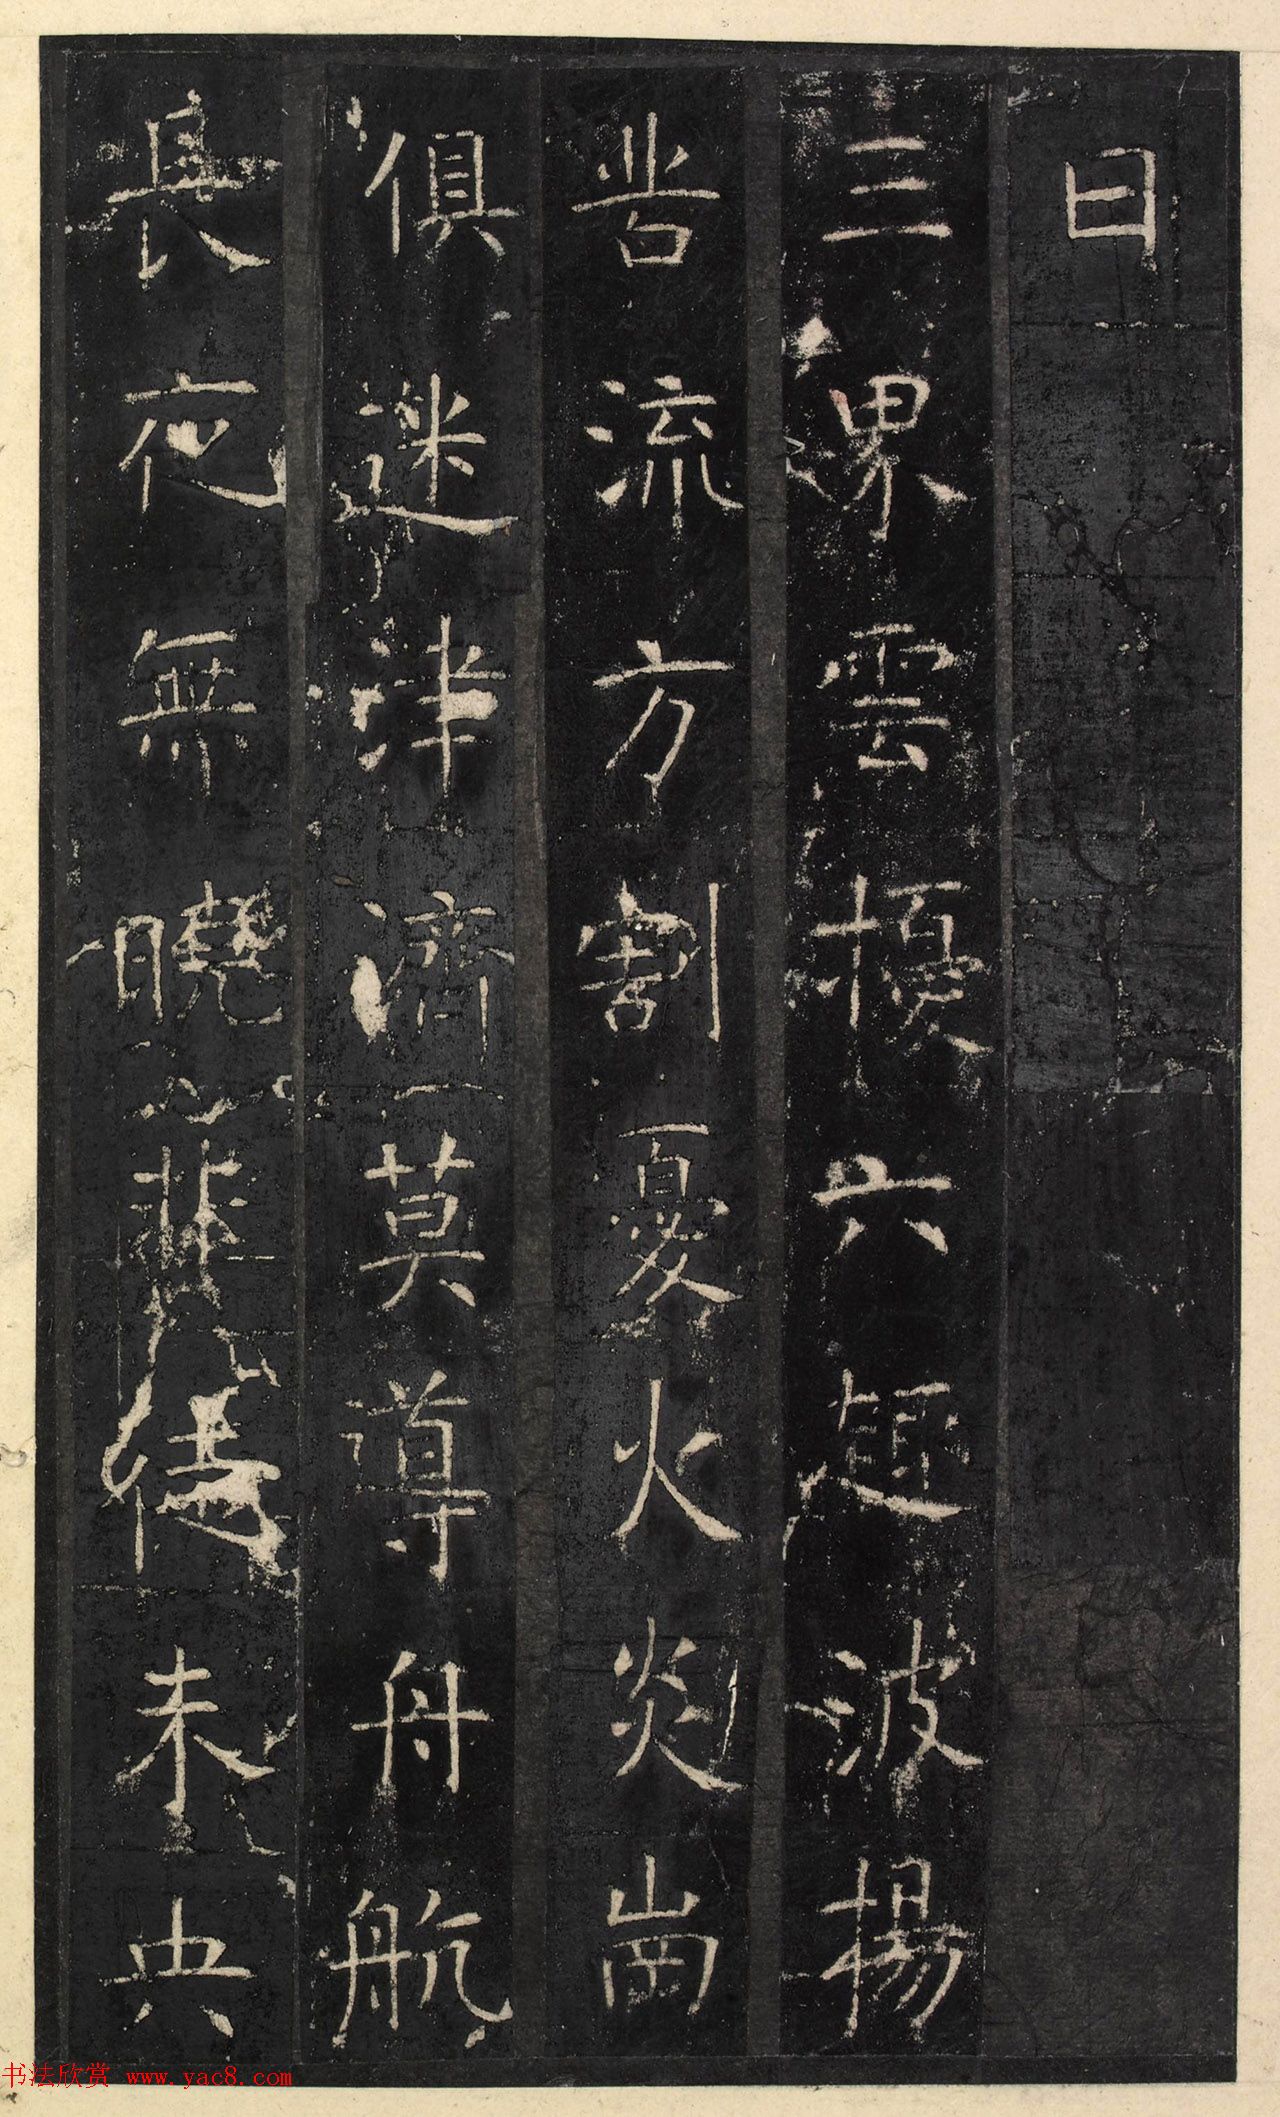 曰
三界雲擾六趣波揚
昔流方割憂火炎崗
俱迷津濟莫導舟航
長夜無曉非僊未央
书法欣赏 www.yac8.com